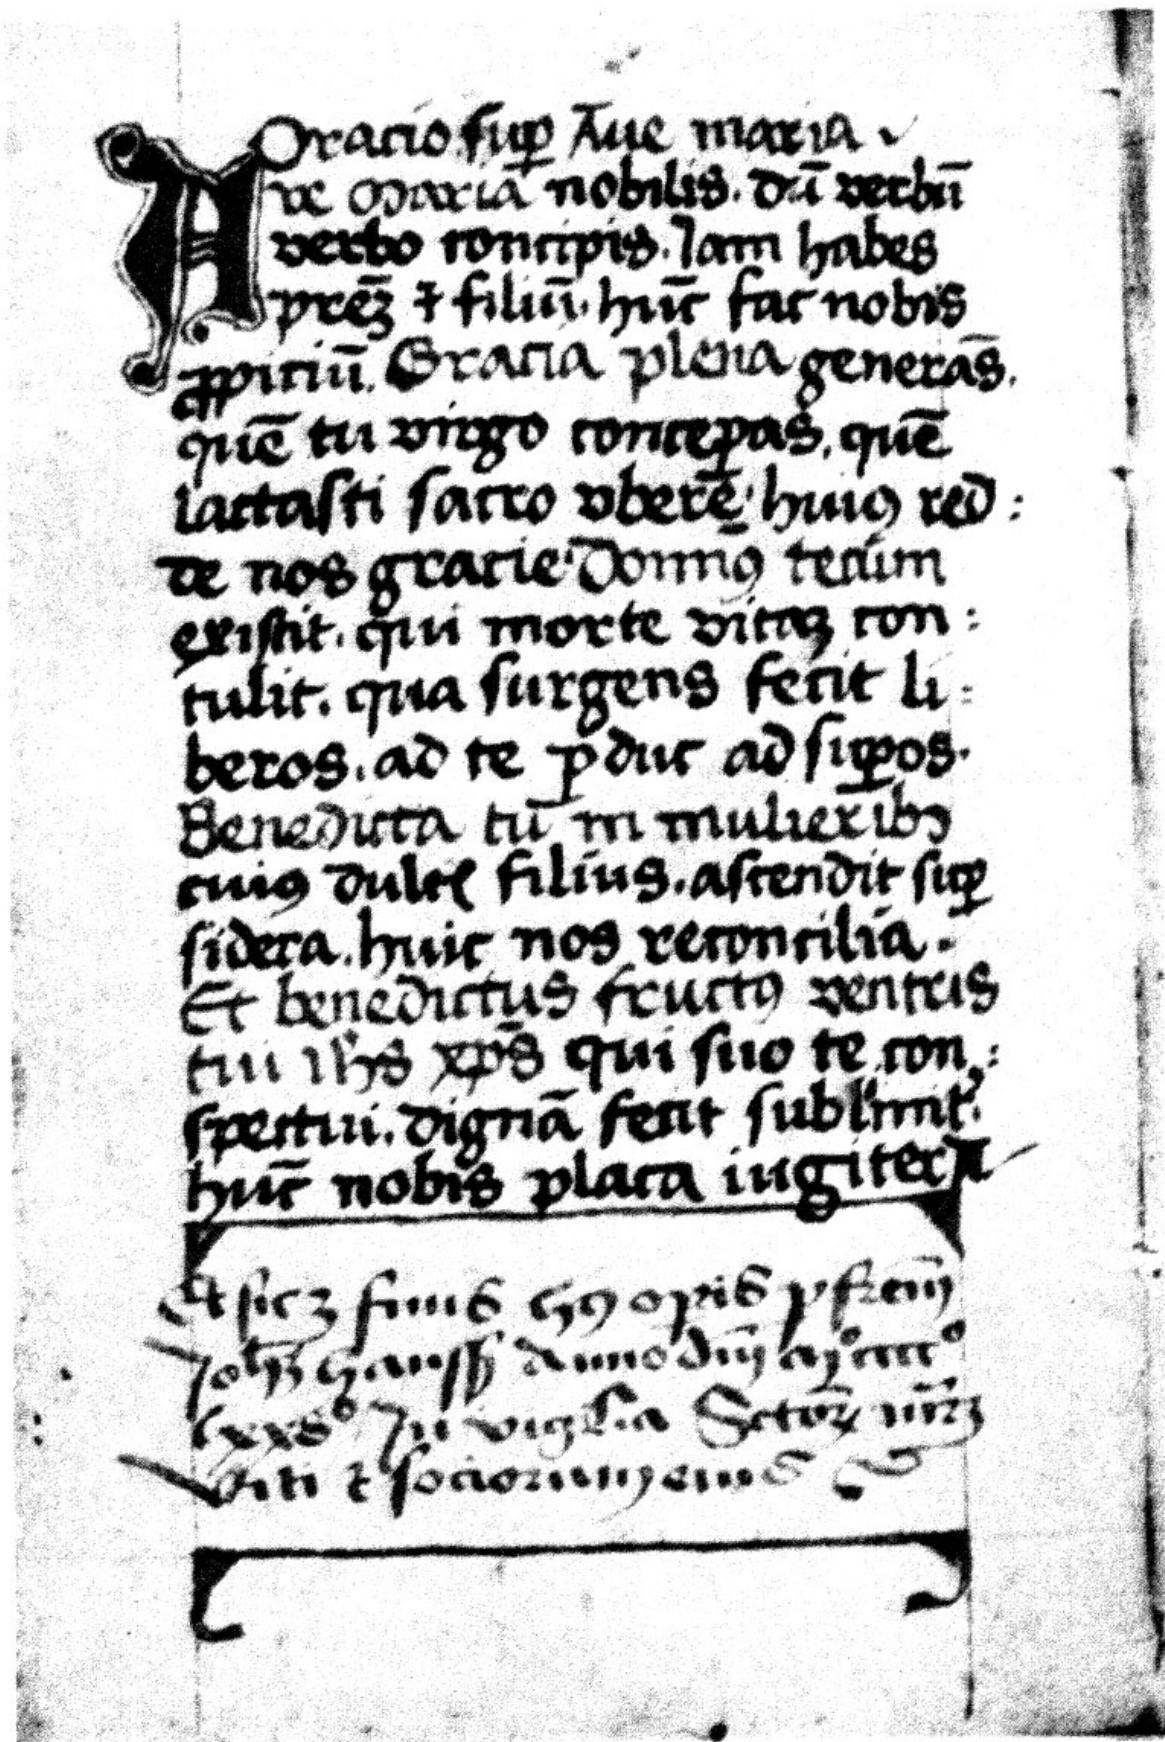 Oracio sup̱ Aue maria
Ave Mariā nobilis. dū verbū
verbo concipis. Iam habes
prēꝫ ⁊ filiū. hūc fac nobis
ꝓpiciū. Gracia plena generās.
quē tu virgo conceꝑas. quē
lactasti sacro vbere. huiꝯ red:
de nos gracie. Dominꝯ tecum
existit. qui morte vitaꝫ con:
tulit. qua surgens fecit li:
beros. ad te ꝑduc ad suꝑos.
Benedicta tū in mulieribꝯ
cuiꝯ dulcꝭ filius. ascendit suꝑ
sidera. huic nos reconcilia.
Et benedictus fructꝯ ventris
tui ihs xp̄s qui suo te con:
spectui. dignā fecit sublimit᷒.
hūc nobis placa iugiter A
Et sic ꝫ finis hꝯ opis ꝑ frem
Joh Anno dn̄i mº cccc º
lxx8º In vigilia Sctoꝝ mr̄ꝫ
viti ⁊ sociorum eius